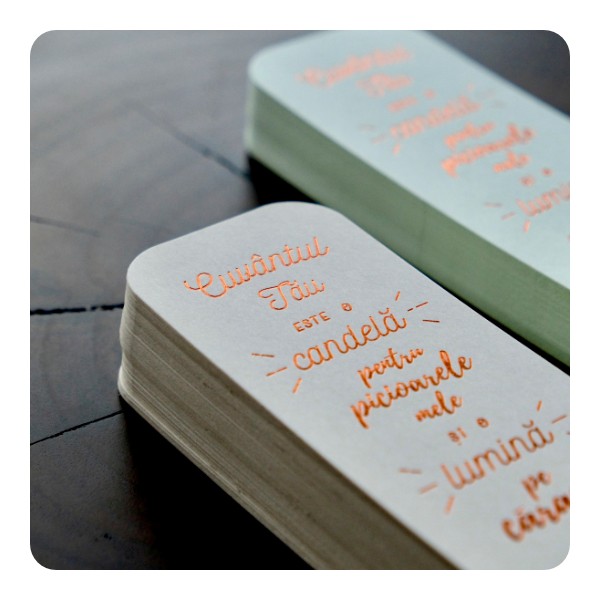 Cuvântul
Tău
ESTE O
candelă
pentru
picioarele
mele
ȘI O
lumină
pe
Cuvântul
Tău
candelă
pentru
picioarele
mele
lumină